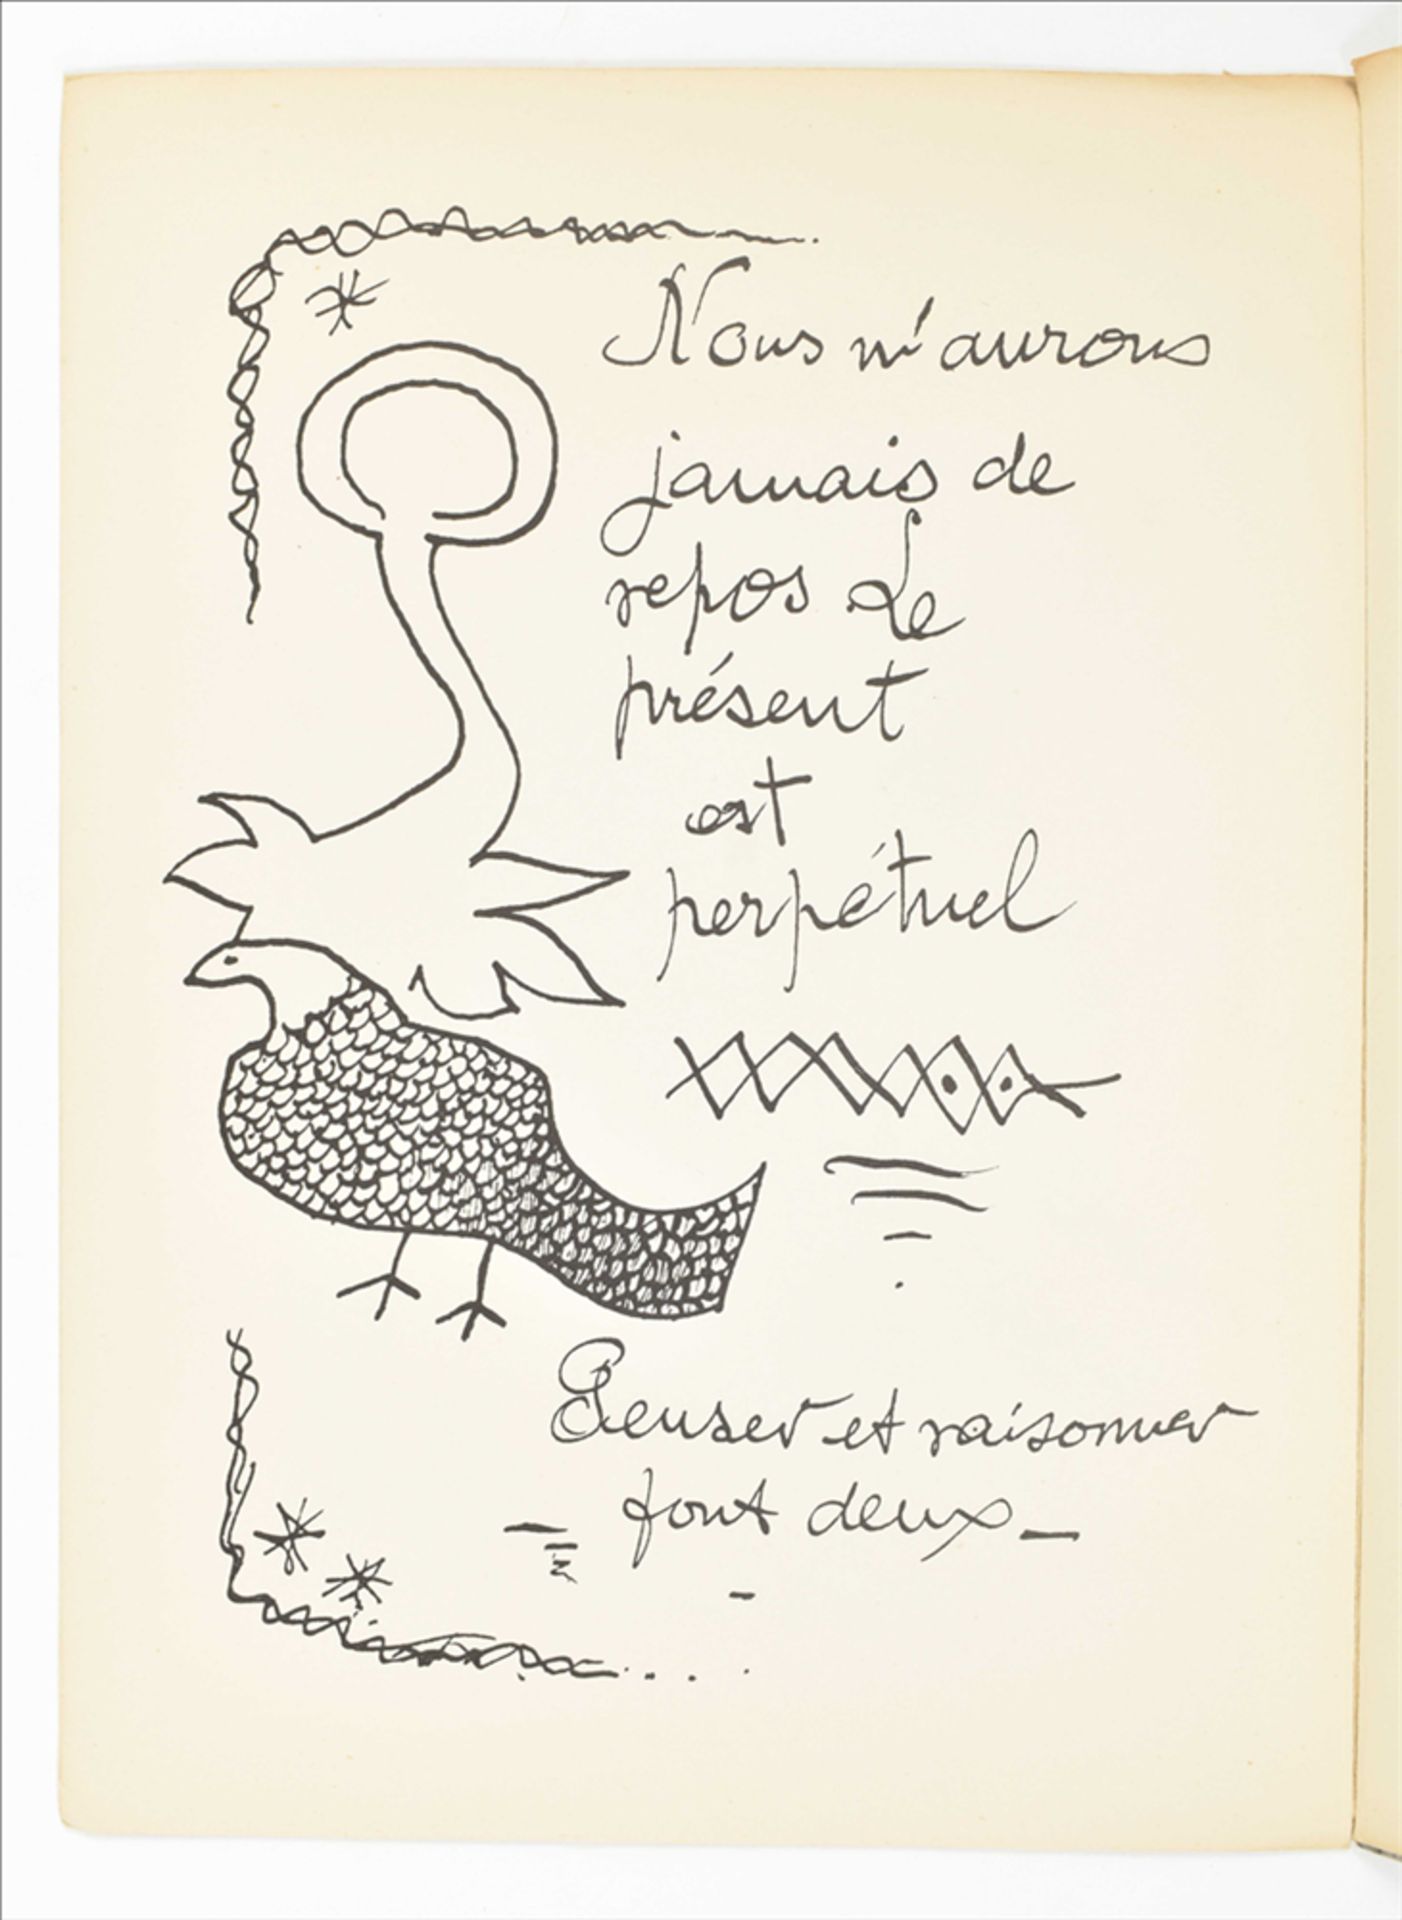 Nous n'aurons
jamais de
repos Le
présent
est
perpétuel
Penser et raisonner
font deux_